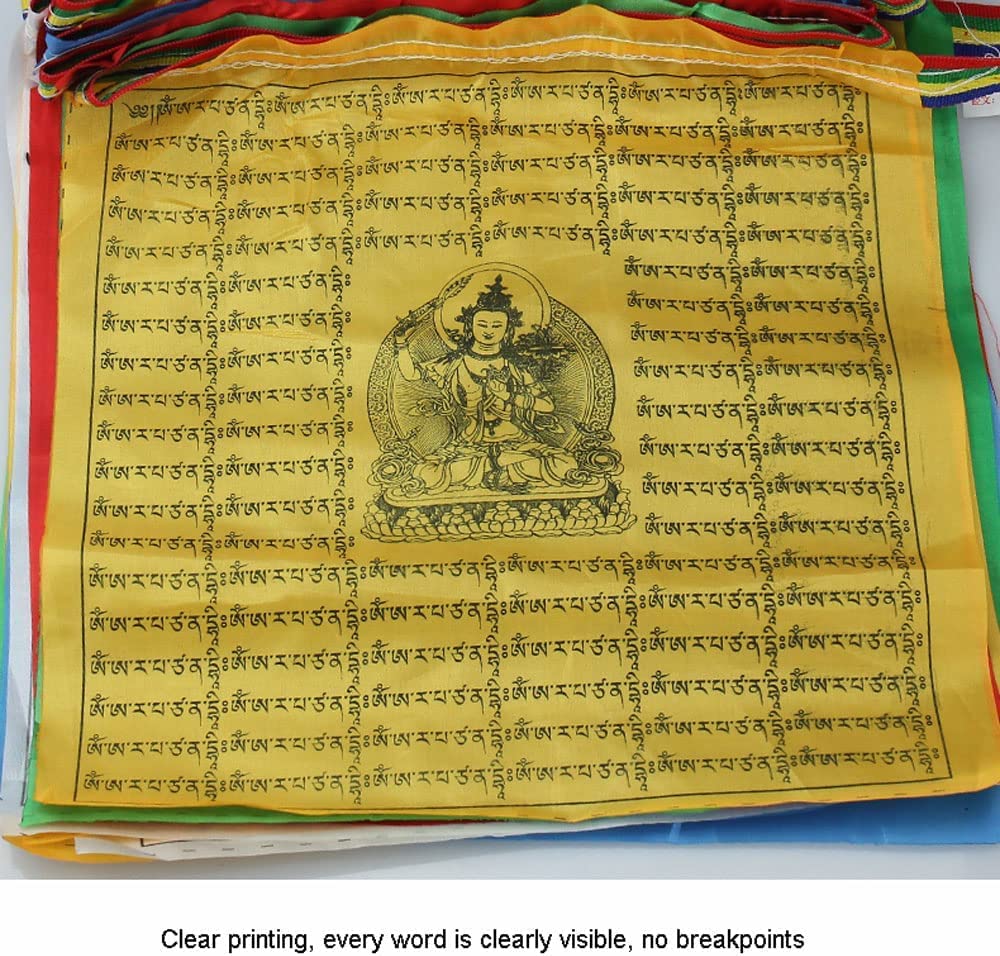 ༄༅།།ཨོཾ་ཨ་ར་པ་ཙ་ན་དྷཱིཿཨོཾ་ཨ་ར་པ་ཙ་ན་དྷཱིཿཨོཾ་ཨ་ར་པ་ཙ་ན་དྷཱིཿཨོཾ་ཨ་ར་པ་ཙ་ན་དྷཱིཿཨོཾ་ཨ་ར་པ་ཙ་ན་དྷཱིཿཨོཾ་ཨ་ར་པ་ཙ་ན་དྷཱིཿ
ཨོཾ་ཨ་ར་པ་ཙ་ན་དྷཱིཿཨོཾ་ཨ་ར་པ་ཙ་ན་དྷཱིཿཨོཾ་ཨ་ར་པ་ཙ་ན་དྷཱིཿཨོཾ་ཨ་ར་པ་ཙ་ན་དྷཱིཿཨོཾ་ཨ་ར་པ་ཙ་ན་དྷཱིཿཨོཾ་ཨ་ར་པ་ཙ་ན་དྷཱིཿ
ཨོཾ་ཨ་ར་པ་ཙ་ན་དྷཱིཿཨོཾ་ཨ་ར་པ་ཙ་ན་དྷཱིཿཨོཾ་ཨ་ར་པ་ཙ་ན་དྷཱིཿཨོཾ་ཨ་ར་པ་ཙ་ན་དྷཱིཿཨོཾ་ཨ་ར་པ་ཙ་ན་དྷཱིཿཨོཾ་ཨ་ར་པ་ཙ་ན་དྷཱིཿ
ཨོཾ་ཨ་ར་པ་ཙ་ན་དྷཱིཿཨོཾ་ཨ་ར་པ་ཙ་ན་དྷཱིཿཨོཾ་ཨ་ར་པ་ཙ་ན་དྷཱིཿཨོཾ་ཨ་ར་པ་ཙ་ན་དྷཱིཿཨོཾ་ཨ་ར་པ་ཙ་ན་དྷཱིཿཨོཾ་ཨ་ར་པ་ཙ་ན་དྷཱིཿ
ཨོཾ་ཨ་ར་པ་ཙ་ན་དྷཱིཿཨོཾ་ཨ་ར་པ་ཙ་ན་དྷཱིཿཨོཾ་ཨ་ར་པ་ཙ་ན་དྷཱིཿཨོཾ་ཨ་ར་པ་ཙ་ན་དྷཱིཿཨོཾ་ཨ་ར་པ་ཙ་ན་དྷཱིཿཨོཾ་ཨ་ར་པ་ཙ་ན་དྷཱིཿ
ཨོཾ་ཨ་ར་པ་ཙ་ན་དྷཱིཿཨོཾ་ཨ་ར་པ་ཙ་ན་དྷཱིཿ ཨོཾ་ཨ་ར་པ་ཙ་ན་དྷཱིཿཨོཾ་ཨ་ར་པ་ཙ་ན་དྷཱིཿ
ཨོཾ་ཨ་ར་པ་ཙ་ན་དྷཱིཿཨོཾ་ཨ་ར་པ་ཙ་ན་དྷཱིཿ ཨོཾ་ཨ་ར་པ་ཙ་ན་དྷཱིཿཨོཾ་ཨ་ར་པ་ཙ་ན་དྷཱིཿ
ཨོཾ་ཨ་ར་པ་ཙ་ན་དྷཱིཿཨོཾ་ཨ་ར་པ་ཙ་ན་དྷཱིཿ ཨོཾ་ཨ་ར་པ་ཙ་ན་དྷཱིཿཨོཾ་ཨ་ར་པ་ཙ་ན་དྷཱིཿ
ཨོཾ་ཨ་ར་པ་ཙ་ན་དྷཱིཿཨོཾ་ཨ་ར་པ་ཙ་ན་དྷཱིཿ ཨོཾ་ཨ་ར་པ་ཙ་ན་དྷཱིཿཨོཾ་ཨ་ར་པ་ཙ་ན་དྷཱིཿ
ཨོཾ་ཨ་ར་པ་ཙ་ན་དྷཱིཿཨོཾ་ཨ་ར་པ་ཙ་ན་དྷཱིཿ ཨོཾ་ཨ་ར་པ་ཙ་ན་དྷཱིཿཨོཾ་ཨ་ར་པ་ཙ་ན་དྷཱིཿ
ཨོཾ་ཨ་ར་པ་ཙ་ན་དྷཱིཿཨོཾ་ཨ་ར་པ་ཙ་ན་དྷཱིཿ ཨོཾ་ཨ་ར་པ་ཙ་ན་དྷཱིཿཨོཾ་ཨ་ར་པ་ཙ་ན་དྷཱིཿ
ཨོཾ་ཨ་ར་པ་ཙ་ན་དྷཱིཿཨོཾ་ཨ་ར་པ་ཙ་ན་དྷཱིཿ ཨོཾ་ཨ་ར་པ་ཙ་ན་དྷཱིཿཨོཾ་ཨ་ར་པ་ཙ་ན་དྷཱིཿ
ཨོཾ་ཨ་ར་པ་ཙ་ན་དྷཱིཿཨོཾ་ཨ་ར་པ་ཙ་ན་དྷཱིཿ ཨོཾ་ཨ་ར་པ་ཙ་ན་དྷཱིཿཨོཾ་ཨ་ར་པ་ཙ་ན་དྷཱིཿ
ཨོཾ་ཨ་ར་པ་ཙ་ན་དྷཱིཿཨོཾ་ཨ་ར་པ་ཙ་ན་དྷཱིཿཨོཾ་ཨ་ར་པ་ཙ་ན་དྷཱིཿཨོཾ་ཨ་ར་པ་ཙ་ན་དྷཱིཿཨོཾ་ཨ་ར་པ་ཙ་ན་དྷཱིཿཨོཾ་ཨ་ར་པ་ཙ་ན་དྷཱིཿ
ཨོཾ་ཨ་ར་པ་ཙ་ན་དྷཱིཿཨོཾ་ཨ་ར་པ་ཙ་ན་དྷཱིཿཨོཾ་ཨ་ར་པ་ཙ་ན་དྷཱིཿཨོཾ་ཨ་ར་པ་ཙ་ན་དྷཱིཿཨོཾ་ཨ་ར་པ་ཙ་ན་དྷཱིཿཨོཾ་ཨ་ར་པ་ཙ་ན་དྷཱིཿ
ཨོཾ་ཨ་ར་པ་ཙ་ན་དྷཱིཿཨོཾ་ཨ་ར་པ་ཙ་ན་དྷཱིཿཨོཾ་ཨ་ར་པ་ཙ་ན་དྷཱིཿཨོཾ་ཨ་ར་པ་ཙ་ན་དྷཱིཿཨོཾ་ཨ་ར་པ་ཙ་ན་དྷཱིཿཨོཾ་ཨ་ར་པ་ཙ་ན་དྷཱིཿ
ཨོཾ་ཨ་ར་པ་ཙ་ན་དྷཱིཿཨོཾ་ཨ་ར་པ་ཙ་ན་དྷཱིཿཨོཾ་ཨ་ར་པ་ཙ་ན་དྷཱིཿཨོཾ་ཨ་ར་པ་ཙ་ན་དྷཱིཿཨོཾ་ཨ་ར་པ་ཙ་ན་དྷཱིཿཨོཾ་ཨ་ར་པ་ཙ་ན་དྷཱིཿ
ཨོཾ་ཨ་ར་པ་ཙ་ན་དྷཱིཿཨོཾ་ཨ་ར་པ་ཙ་ན་དྷཱིཿཨོཾ་ཨ་ར་པ་ཙ་ན་དྷཱིཿཨོཾ་ཨ་ར་པ་ཙ་ན་དྷཱིཿཨོཾ་ཨ་ར་པ་ཙ་ན་དྷཱིཿཨོཾ་ཨ་ར་པ་ཙ་ན་དྷཱིཿ
ཨོཾ་ཨ་ར་པ་ཙ་ན་དྷཱིཿཨོཾ་ཨ་ར་པ་ཙ་ན་དྷཱིཿཨོཾ་ཨ་ར་པ་ཙ་ན་དྷཱིཿཨོཾ་ཨ་ར་པ་ཙ་ན་དྷཱིཿཨོཾ་ཨ་ར་པ་ཙ་ན་དྷཱིཿཨོཾ་ཨ་ར་པ་ཙ་ན་དྷཱིཿ
Clear printing, every word is clearly visible, no breakpoints